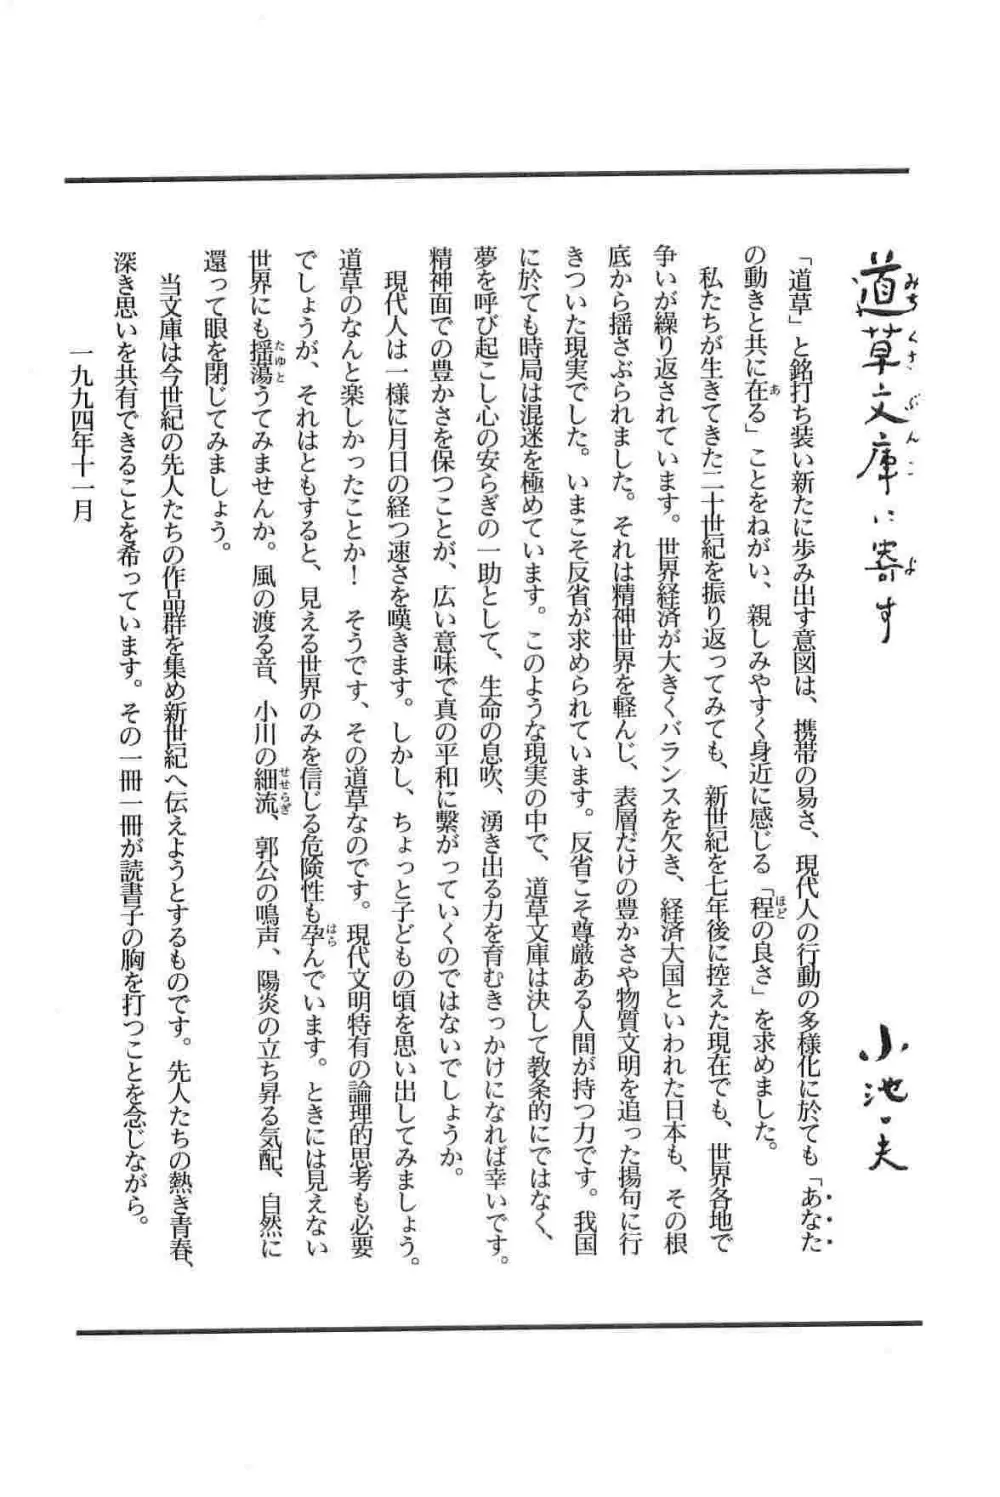 道草文庫に寄す
みちくさぶんこ
よ
小池一夫
「道草」と銘打ち装い新たに歩み出す意図は、携帯の易さ、現代人の行動の多様化に於ても「あなた
の動きと共に在る」ことをねがい、親しみやすく身近に感じる「程の良さ」を求めました。
あ
ほど
私たちが生きてきた二十世紀を振り返ってみても、新世紀を七年後に控えた現在でも、世界各地で
争いが繰り返されています。世界経済が大きくバランスを欠き、経済大国といわれた日本も、その根
底から揺さぶられました。それは精神世界を軽んじ、表層だけの豊かさや物質文明を追った揚句に行
きついた現実でした。いまこそ反省が求められています。反省こそ尊厳ある人間が持つ力です。我国
に於ても時局は混迷を極めています。このような現実の中で、道草文庫は決して教条的にではなく、
夢を呼び起こし心の安らぎの一助として、生命の息吹、湧き出る力を育むきっかけになれば幸いです。
精神面での豊かさを保つことが、広い意味で真の平和に繋がっていくのではないでしょうか。
現代人は一様に月日の経つ速さを嘆きます。しかし、ちょっと子どもの頃を思い出してみましょう。
道草のなんと楽しかったことか！　そうです、その道草なのです。現代文明特有の論理的思考も必要
でしょうが、それはともすると、見える世界のみを信じる危険性も孕んでいます。ときには見えない
はら
世界にも揺蕩うてみませんか。風の渡る音、小川の細流、郭公の鳴声、陽炎の立ち昇る気配、自然に
たゆと
せせらぎ
還って眼を閉じてみましょう。
当文庫は今世紀の先人たちの作品群を集め新世紀へ伝えようとするものです。先人たちの熱き青春、
深き思いを共有できることを希っています。その一冊一冊が読書子の胸を打つことを念じながら。
一九九四年十一月